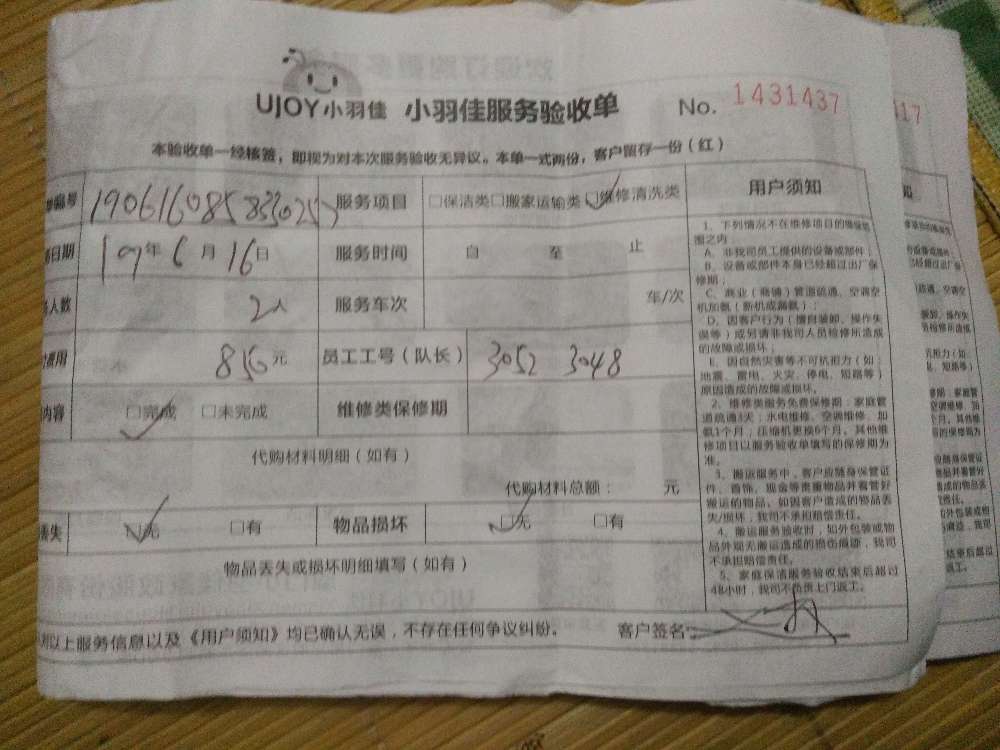 UJOY小羽佳 小羽佳服务验收单 No. 1431437
本验收单一经核签，即视为对本次服务验收无异议。本单一式两份，客户留存一份（红）
编号 服务项目 □保洁类□搬家运输类□维修清洗类
日期 19年6月16日 服务时间 自 至 止
人数 2人 服务车次 车/次
费用 850元 员工工号（队长） 3052 3048
内容 □完成 □未完成 维修类保修期
代购材料明细（如有）
代购材料总额： 元
丢失 □无 □有 物品损坏 □无 □有
物品丢失或损坏明细填写（如有）
以上服务信息以及《用户须知》均已确认无误，不存在任何争议纠纷。 客户签名
用户须知
1、下列情况不在维修项目的维保范
围之内
A、非我司员工提供的设备或部件；
B、设备或部件本身已经超过出厂保
修期；
C、商业（商铺）管道疏通、空调空
机加氨（新机或漏氨）；
D、因客户行为（擅自装卸、操作失
误等）或另请非我司人员检修所造成
的故障或损坏；
E、因自然灾害等不可抗拒力（如：
地震、雷电、火灾、停电、短路等）
原因造成的故障或损坏。
2、维修类服务免费保修期：家庭管
道疏通3天；水电维修、空调维修、加
氨1个月；压缩机更换6个月。其他维
修项目以服务验收单填写的保修期为
准。
3、搬运服务中，客户应随身保管证
件、首饰、现金等贵重物品并看管好
搬运的物品。如因客户造成的物品丢
失/损坏，我司不承担赔偿责任。
4、搬运服务验收时，如外包装或物
品外观无搬运造成的损伤痕迹，我司
不承担赔偿责任。
5、家庭保洁服务验收结束后超过
48小时，我司不负责上门返工。